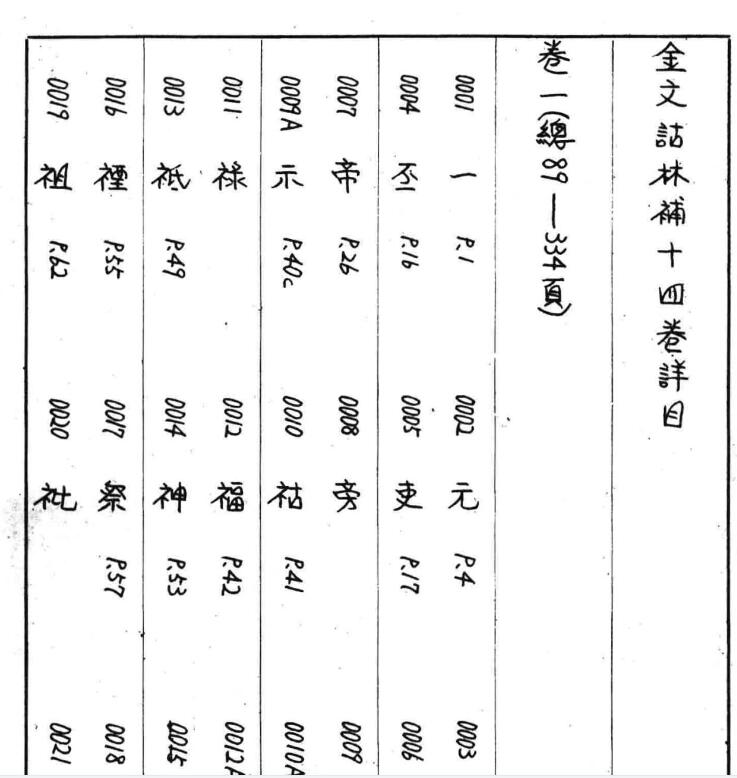 金文詁林補十四卷詳目
卷一(總89—334頁)
0001 一 P.1 0002 元 P.4 0003
0004 丕 P.16 0005 吏 P.17 0006
0007 帝 P.26 0008 旁 0009
0009A 示 P.40c 0010 祜 P.41 0010A
0011 祿 0012 福 P.42 0012A
0013 祗 P.49 0014 神 P.53 0015
0016 禋 P.55 0017 祭 P.57 0018
0019 祖 P.62 0020 祉 0021